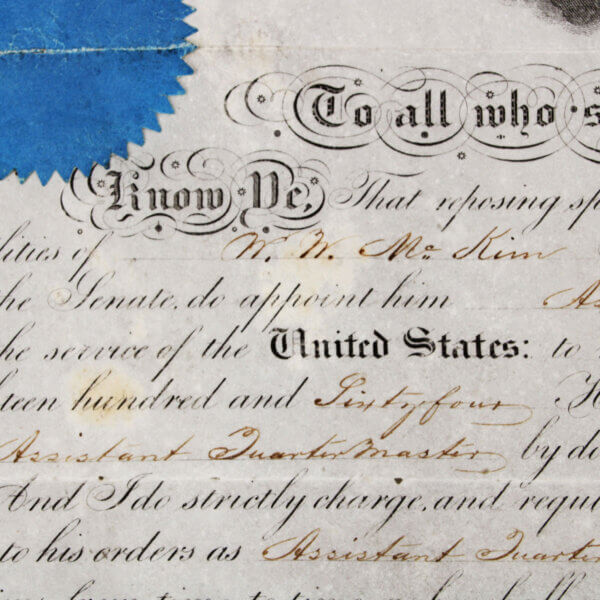 To all who s
Know Ye, That reposing sp
lities of W. W. Mc Kim
the Senate, do appoint him As
he service of the United States: to
teen hundred and Sixty four H
Assistant Quarter Master by do
And I do strictly charge, and requi
to his orders as Assistant Quarte
from time to time